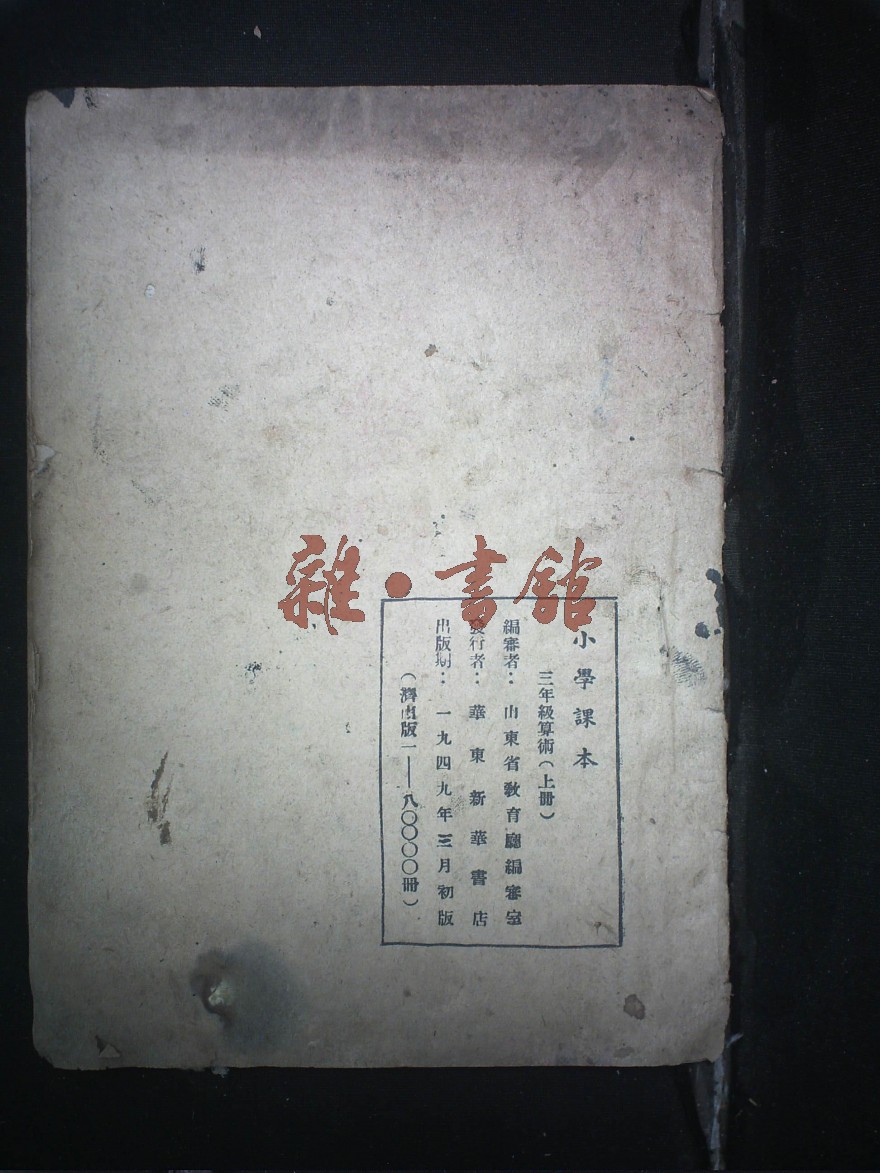 雜·書館
小學課本
三年級算術(上冊)
編審者:山東省教育廳編審室
發行者:華東新華書店
出版期:一九四九年三月初版
(濟南版一——八〇〇〇〇冊)